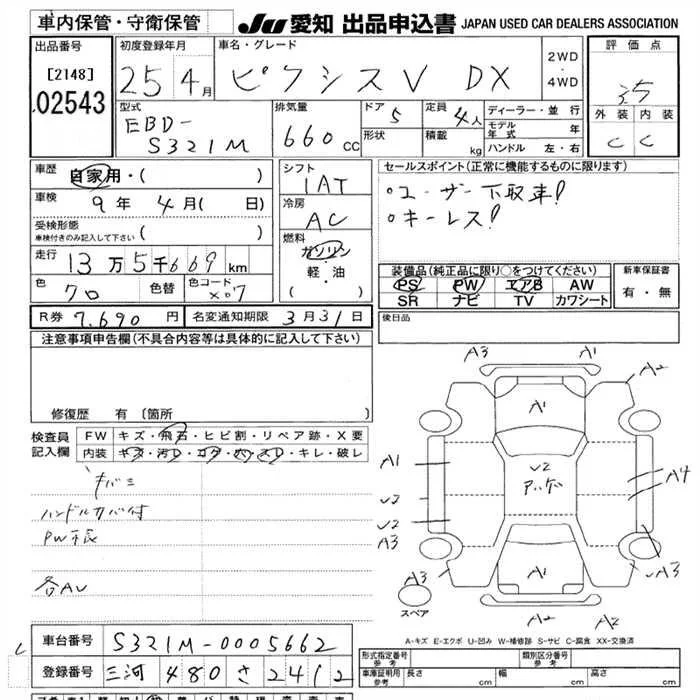 車内保管・守衛保管
JU 愛知 出品申込書 JAPAN USED CAR DEALERS ASSOCIATION
出品番号
[2148]
02543
初度登録年月
25 4月
車名・グレード
ピクシスV DX
2WD
・
4WD
評価点
3.5
外装 内装
C C
型式
EBD-
S321M
排気量
660 CC
ドア 5
形状
定員 4人
積載 kg
ディーラー・並 行
モデル年式 年
ハンドル 左・右
車歴
自家用・( )
車検
9年 4月( 日)
受検形態
車検付きのみ記入して下さい ( )
走行
13万5千669 km
色 クロ 色替 色コード X07
シフト
1AT
冷房
AC
燃料
ガソリン
軽・油
( )
セールスポイント(正常に機能するものに限ります)
○ユーザー下取車!
○キーレス!
装備品(純正品に限り○をつけてください)
PS PW エアB AW
SR ナビ TV カワシート
新車保証書
有・無
R券 7,690 円 名変通知期限 3月31日
後日品
注意事項申告欄(不具合内容等は具体的に記入して下さい)
修復歴 有 [箇所
検査員
記入欄
FW キズ・飛石・ヒビ割・リペア跡・X要
内装 キズ・汚レ・コゲ・穴・スレ・キレ・破レ
キバミ
ハンドルカバ付
PW不良
各AU
A3 A1 A2
A1
A1 U2 アハゲ A4
U2
U2
A3 A3
A3 A1
A2 A2
スペア
A-キズ E-エクボ U-凹み W-補修跡 S-サビ C-腐食 XX-交換済
車台番号 S321M-0005662
登録番号 三河 480 さ 2412
形式指定番号
参考
類別区分番号
参考
車庫証明用
参考
長さ cm 幅 cm 高さ cm